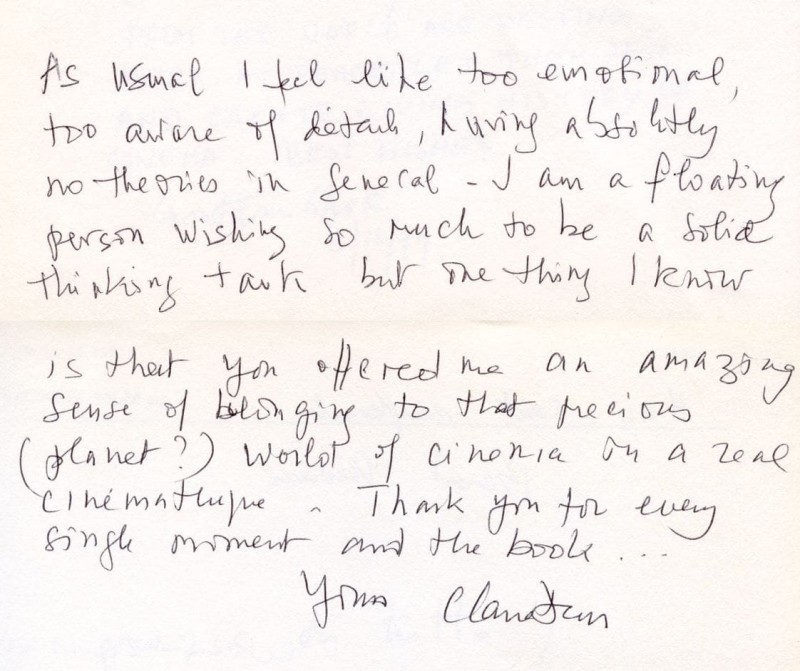 As usual I feel like too emotional,
too aware of details, having absolutly
no theories in general - I am a floating
person wishing so much to be a solid
thinking tank but one thing I know
is that you offered me an amazing
sense of belonging to that precious
(planet?) world of cinema in a real
cinémathèque. Thank you for every
single moment and the book...
Yours